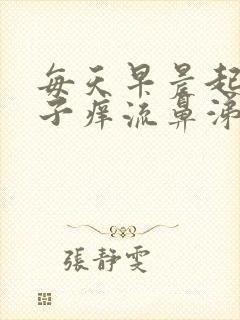 每天早晨起
子痒流鼻涕
張靜雯